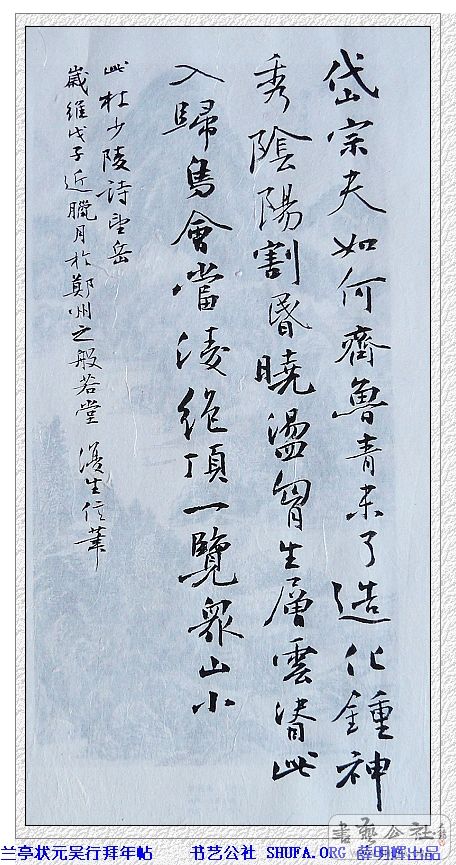 岱宗夫如何齊魯青未了造化鍾神
秀陰陽割昬曉盪胷生層雲
入歸鳥會當淩絕頂一覽衆山小
此杜少陵詩望岳
歲維戊子近臘月於鄭州之般若堂 生信筆
書藝公社
兰亭状元吴行拜年帖 书艺公社 SHUFA.ORG 薛明辉出品